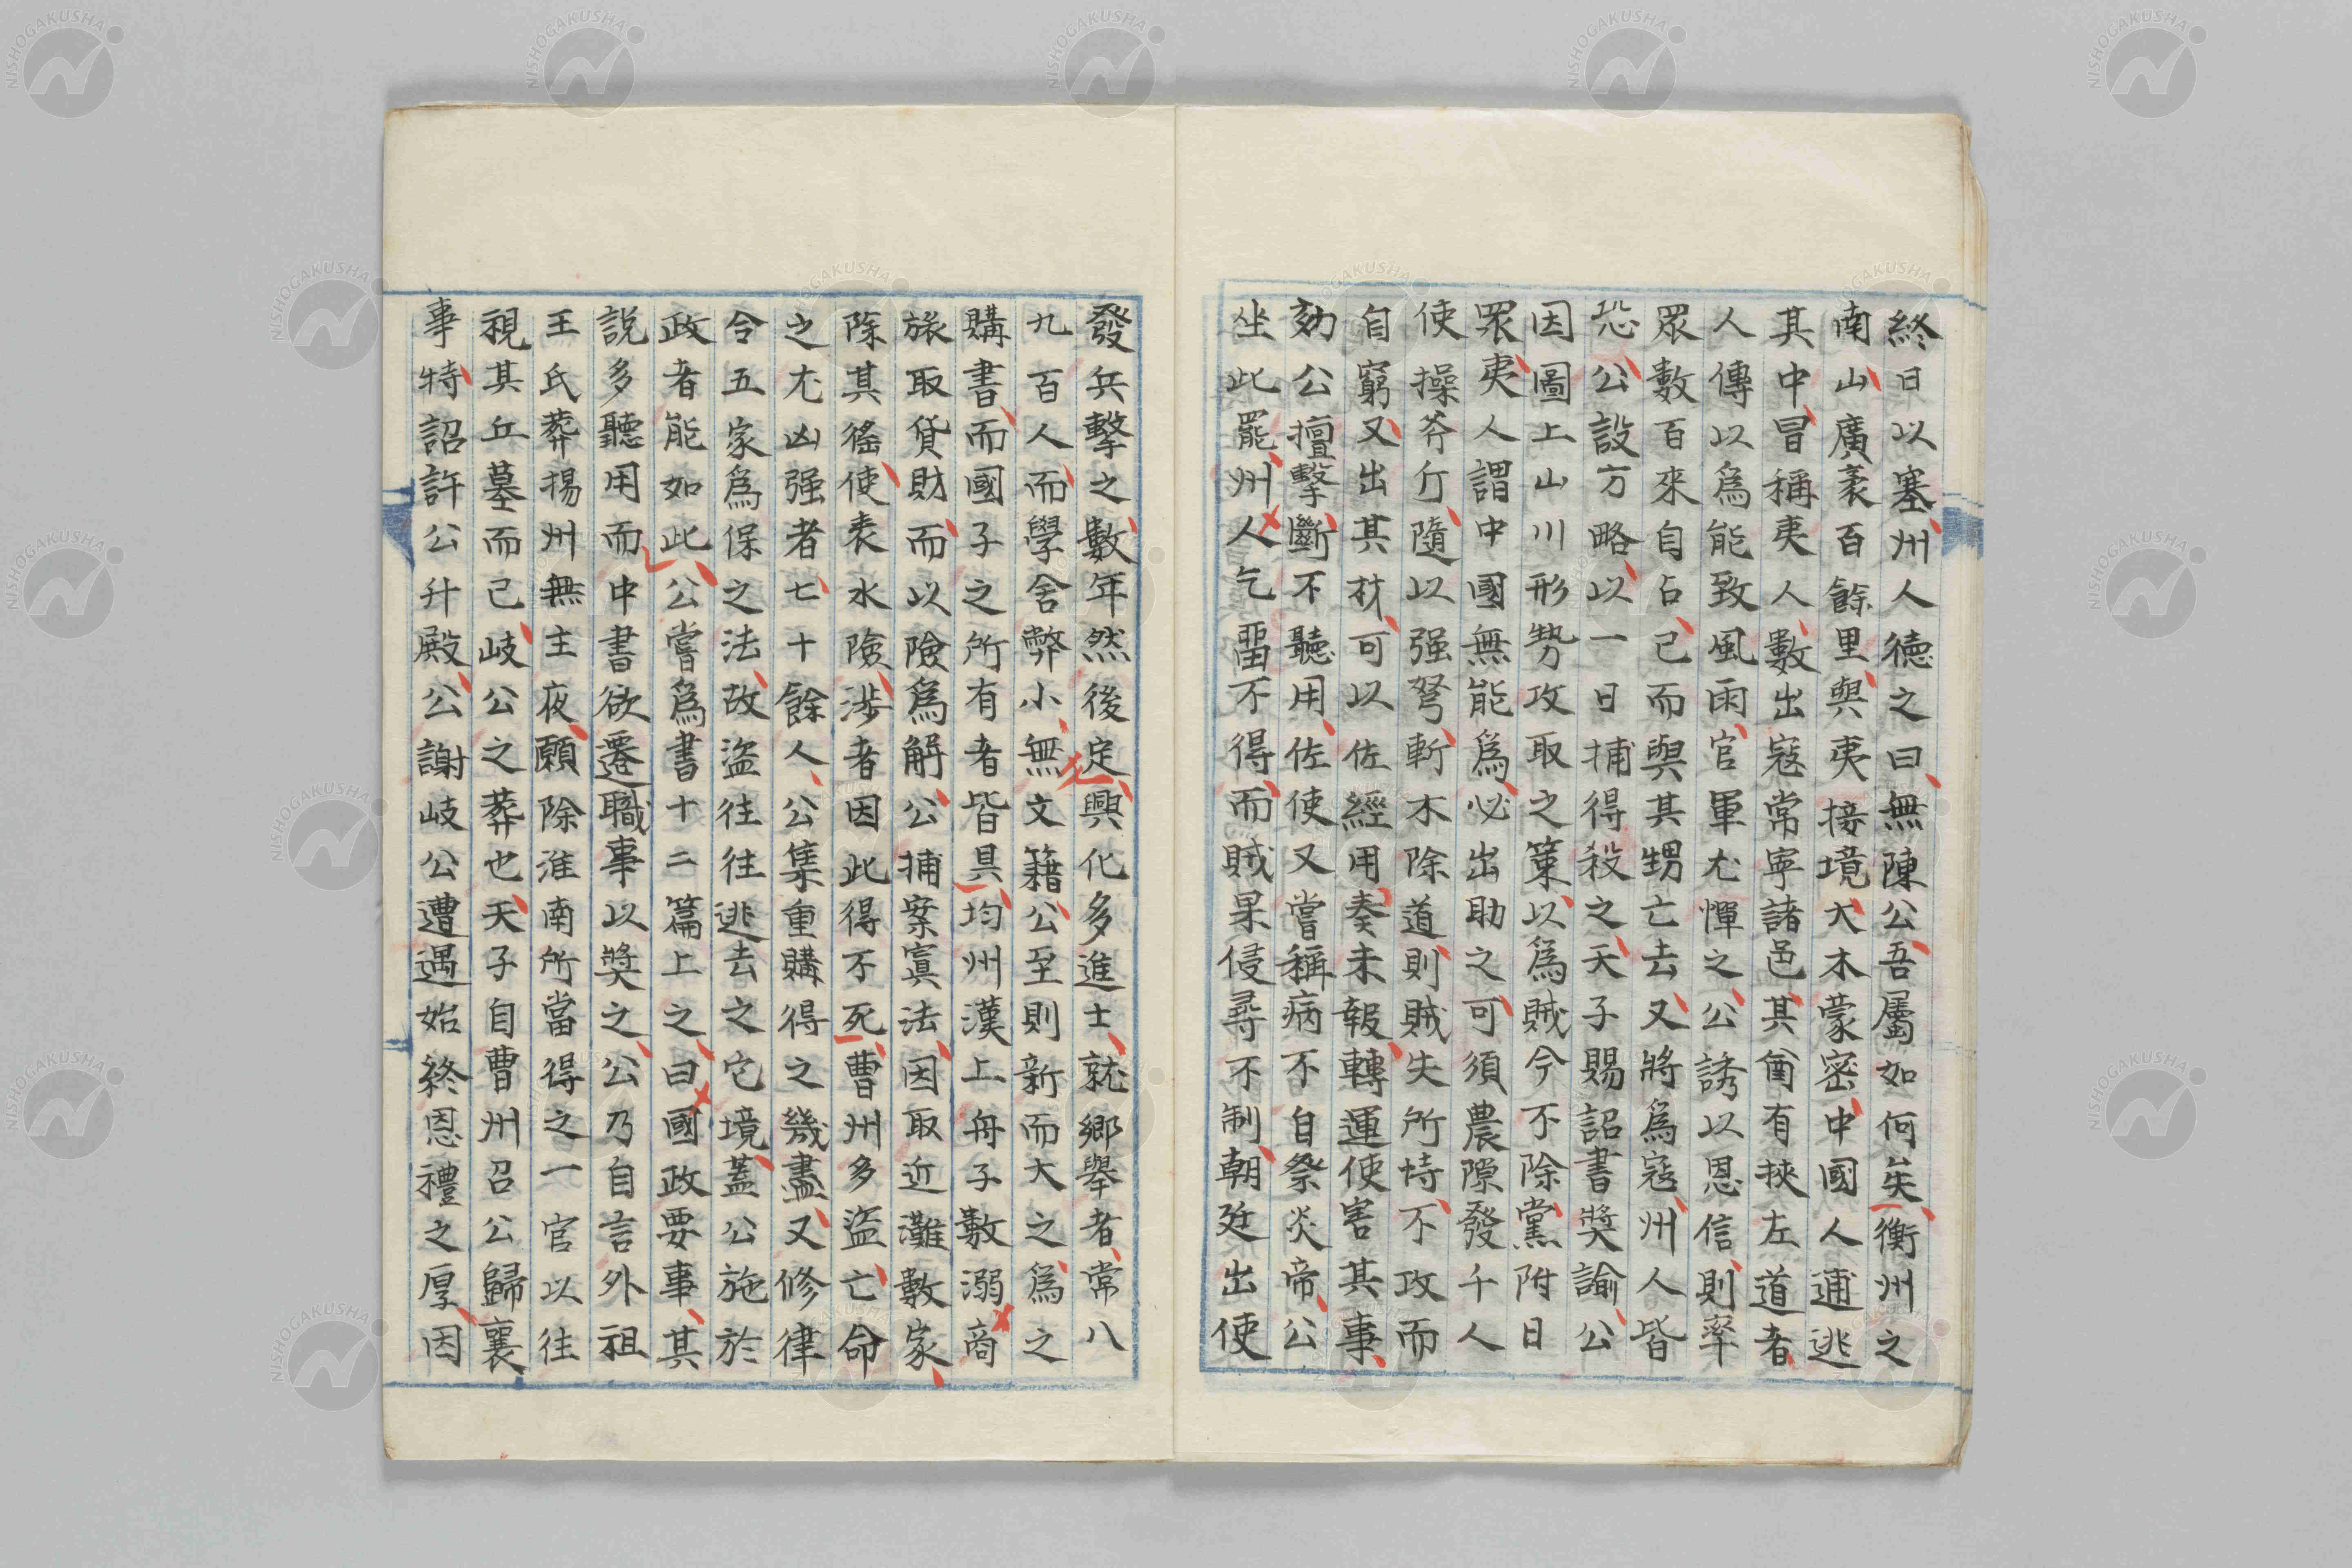 終日以塞州人德之曰無陳公吾屬如何矣衡州之
南山廣袤百餘里與夷接境大木蒙密中國人逋逃
其中冒稱夷人數出寇常寧諸邑其酋有挾左道者
人傳以爲能致風雨官軍尤憚之公誘以恩信則率
眾數百來自占已而與其甥亡去又將爲寇州人皆
恐公設方略以一日捕得殺之天子賜詔書奬諭公
因圖上山川形勢攻取之策以爲賊今不除黨附日
眾夷人謂中國無能爲必出助之可須農隙發千人
使操斧斤隨以强弩斬木除道則賊失所恃不攻而
自窮又出其材可以佐經用奏未報轉運使害其事
劾公擅擊斷不聽用佐使又嘗稱病不自祭炎帝公
坐此罷州人乞畱不得而賊果侵尋不制朝廷出使
發兵擊之數年然後定興化多進士就鄉舉者常八
九百人而學舍弊小無文籍公至則新而大之爲之
購書而國子之所有者皆具均州漢上舟子數溺商
旅取貨財而以險爲解公捕案寘法因取近灘數家
除其徭使表水險涉者因此得不死曹州多盜亡命
之尤凶强者七十餘人公集重購得之幾盡又修律
令五家爲保之法故盜往往逃去之它境蓋公施於
政者能如此公嘗爲書十二篇上之曰國政要事其
說多聽用而中書欲遷職事以奬之公乃自言外祖
王氏葬揚州無主夜願除淮南所當得之一官以往
視其丘墓而已岐公之葬也天子自曹州召公歸襄
事特詔許公升殿公謝岐公遭遇始終恩禮之厚因